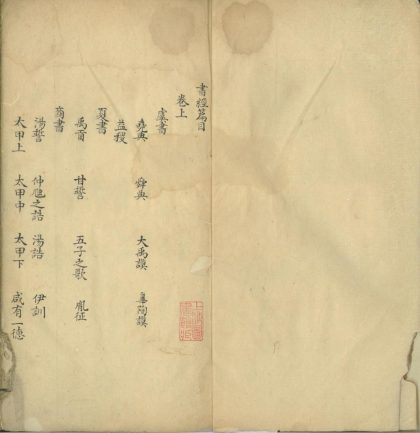 書經篇目
卷上
虞書
堯典 舜典 大禹謨 皐陶謨
益稷
夏書
禹貢 甘誓 五子之歌 胤征
商書
湯誓 仲虺之誥 湯誥 伊訓
太甲上 太甲中 太甲下 咸有一德